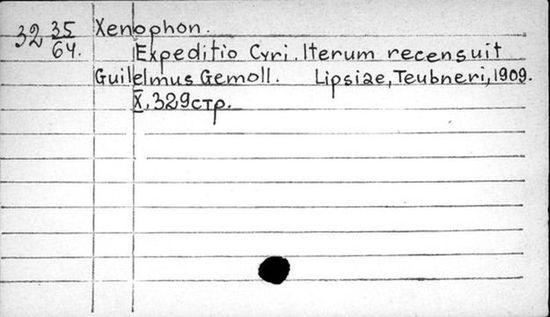 32 35/64. Xenophon.
Expeditio Cyri. Iterum recensuit
Guilelmus Gemoll. Lipsiae, Teubneri, 1909.
X, 329стр.